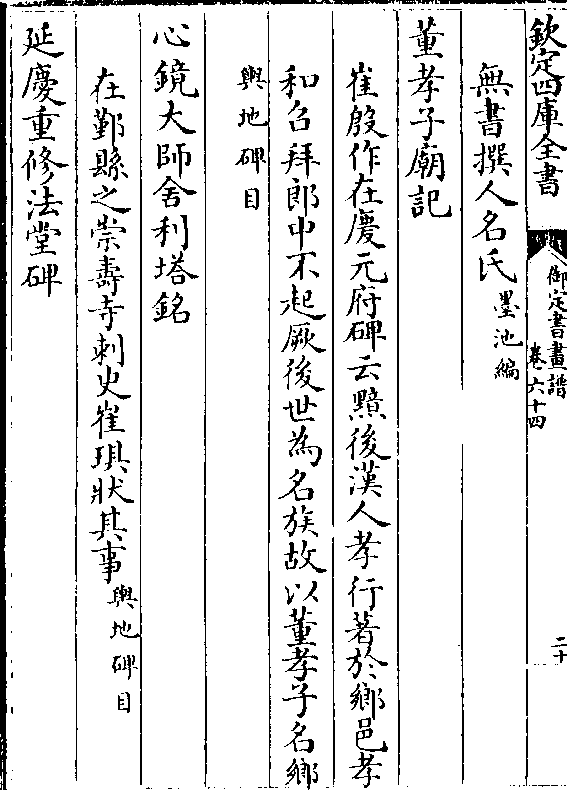 欽定四庫全書
御定書畫譜
卷六十四
二十
無書撰人名氏墨池編
董孝子廟記
崔殷作在慶元府碑云黯後漢人孝行著於鄉邑孝
和召拜郎中不起厥後世為名族故以董孝子名鄉
輿地碑目
心鏡大師舍利塔銘
在鄞縣之崇壽寺刺史崔琪狀其事輿地碑目
延慶重修法堂碑